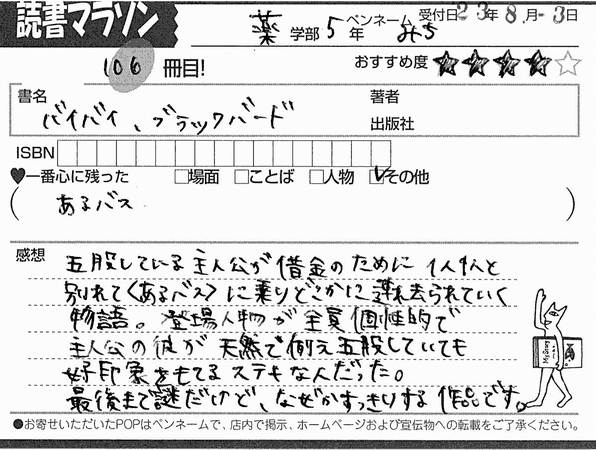 読書マラソン
薬 学部 5年 ペンネーム みち 受付日 23年 8月-3日
106 冊目!
おすすめ度 ★★★★☆
書名 バイバイ、ブラックバード
著者
出版社
ISBN
♥一番心に残った □場面 □ことば □人物 ☑その他
( あるバス )
感想
五股している主人公が借金のために1人1人と
別れて〈あるバス〉に乗りどこかに連れ去られていく
物語。登場人物が全員個性的で
主人公の彼が天然で例え五股していても
好印象をもてるステキな人だった。
最後まで謎だけど、なぜかすっきりする作品です。
●お寄せいただいたPOPはペンネームで、店内で掲示、ホームページおよび宣伝物への転載をご了承ください。